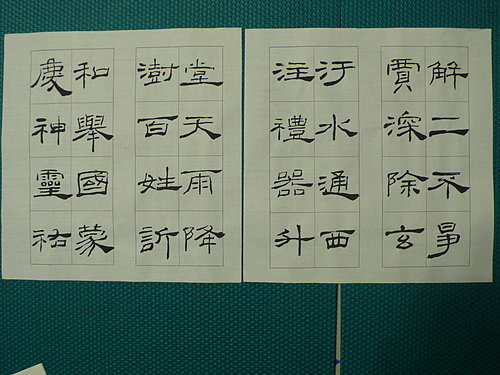 解工不爭
賈深除玄
汙水通四
注禮器升
堂天雨降
澍百姓訢
和舉國蒙
慶神靈祐